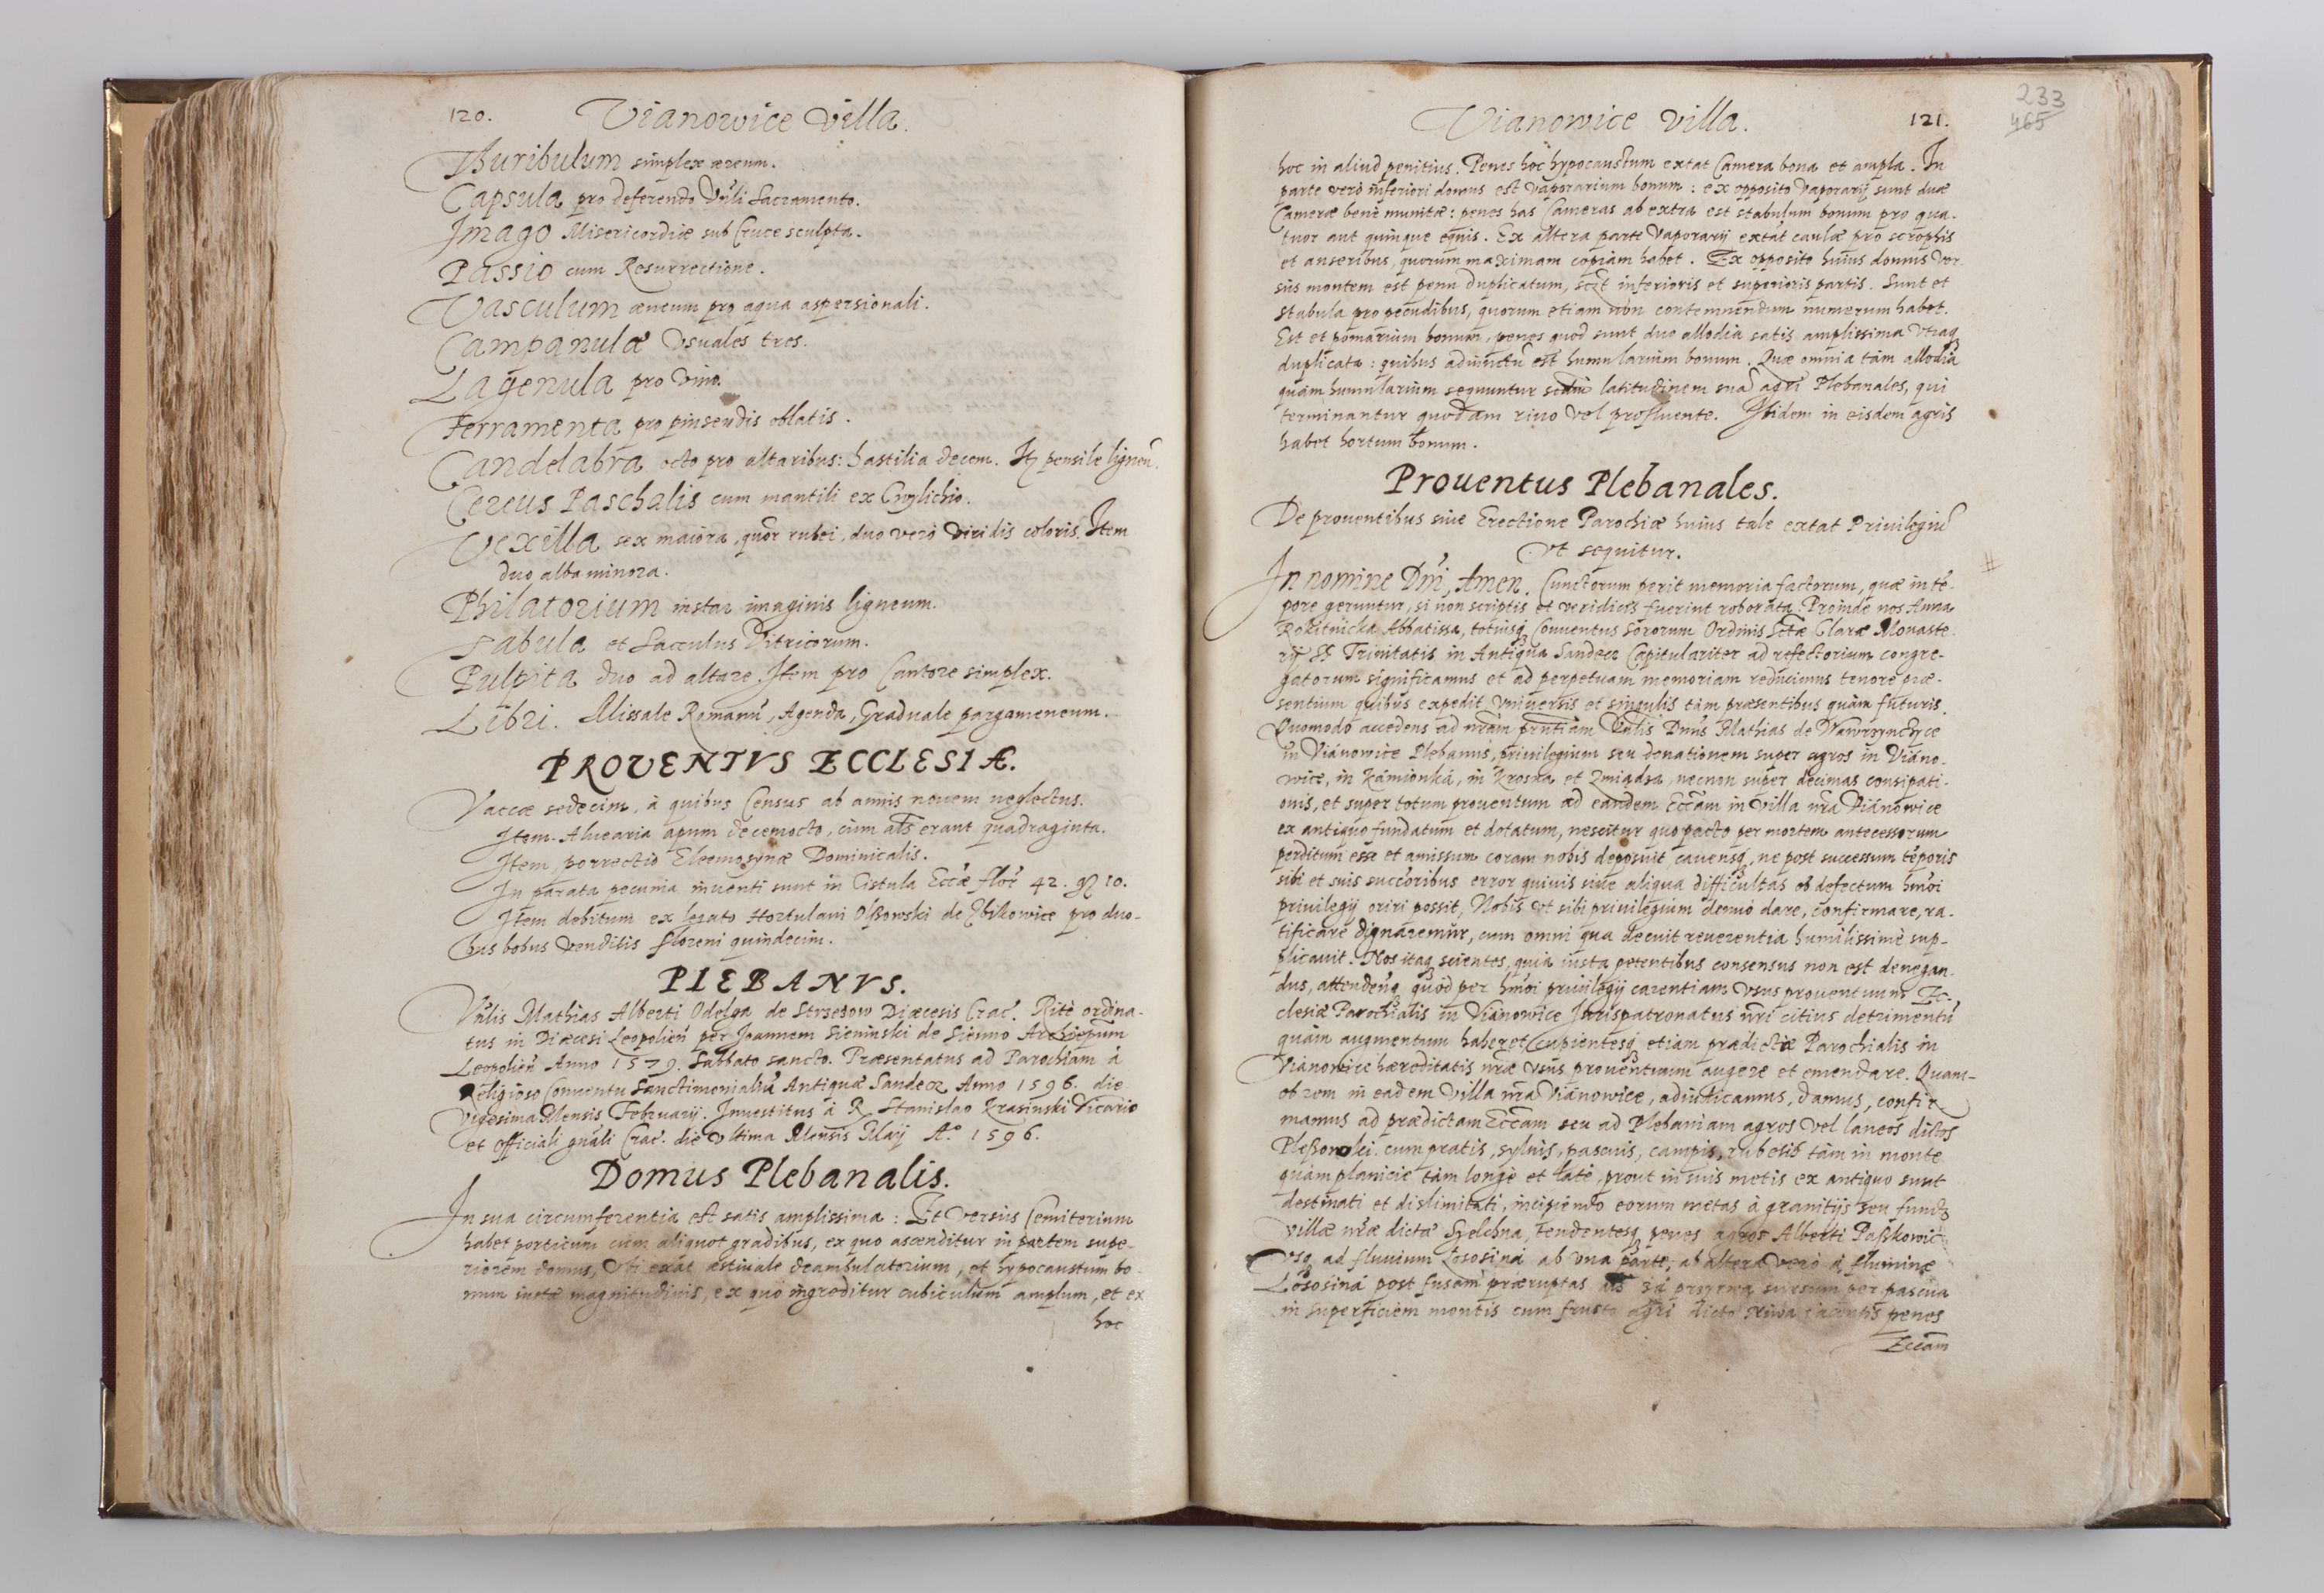 120. Vianowice Villa.
Thuribulum simplex æreum.
Capsula pro deferendo Vñli Sacramento.
Imago Misericordiæ sub Cruce sculpta.
Passio cum Resurrectione.
Vasculum æneum pro aqua aspersionali.
Campanulæ Vsuales tres.
Lagenula pro Vino.
Ferramenta pro pinsendis oblatis.
Candelabra octo pro altaribus: hastilia decem. Itẽ pensile ligneũ.
Cereus Paschalis cum mantili ex Cwylichio.
Vexilla sex maiora, quõr rubei, duo verò viridis coloris. Item
duo alba minora.
Philatorium instar imaginis ligneum.
Tabula et Sacculus Vitricorum.
Pulpita duo ad altare. Item pro Cantore simplex.
Libri. Missale Romanũ, Agenda, Graduale pargameneum.
PROVENTVS ECCLESIÆ.
Vaccæ sedecim, à quibus Census ab annis novem neglectus.
Item Aluearia apum decemocto, cùm als erant quadraginta.
Item, porrectio Eleemosynæ Dominicalis.
In parata pecunia inuenti sunt in Cistula Eccæ flor 42. gr 10.
Item debitum ex legato Hortulani Olßowski de Zbikowice pro duo-
bus bobus venditis floreni quindecim.
PLEBANVS.
Vñlis Mathias Alberti Odelga de Strzezow Diæcesis Crac. Ritè ordina-
tus in Diæcesi Leopolien per Joannem Sieninski de Sienno Archiepum
Leopolien Anno 1579. Sabbato sancto. Præsentatus ad Parochiam à
Religioso Conuentu Sanctimonialiũ Antiquæ Sandecz Anno 1596. die
Vigesima Mensis Februarij. Inuestitus à R. Stanislao Krasinski Vicario
et Officiali gñali Crac. die vltima Mensis Maij A.° 1596.
Domus Plebanalis.
In sua circumferentia est satis amplissima: Et versùs Cemiterium
habet porticum cum aliquot gradibus, ex quo ascenditur in partem supe-
riorem domus, Vbi extat æstiuale deambulatorium, et hypocaustum bo-
num iustæ magnitudinis, ex quo ingreditur cubiculum amplum, et ex
hoc
Vianowice villa. 121.
233
465
hoc in aliud penitius. Penes hoc hypocaustum extat Camera bona et ampla. In
parte verò inferiori domus est vaporarium bonum: ex opposito vaporarij sunt duæ
Cameræ benè munitæ: penes has Cameras ab extra est stabulum bonum pro qua-
tuor aut quinque equis. Ex altera parte Vaporarij extat caulæ pro scrophis
et anseribus, quorum maximam copiam habet. Ex opposito huius domus ver-
sùs montem est penu duplicatum, sczt inferioris et superioris partis. Sunt et
stabula pro pecudibus, quorum etiam non contemnendum numerum habet.
Est et pomarium bonum, penes quod sunt duo allodia satis amplissima vtraq
duplicata: quibus adiunctũ est humularium bonum. Quæ omnia tàm allodia
quàm humularium sequuntur latitudinem suã agri Plebanales, qui
terminantur quodam riuo vel profluente. Ibidem in eisdem agris
habet hortum bonum.
Prouentus Plebanales.
De prouentibus siue Erectione Parochiæ huius tale extat Priuilegiũ
vt sequitur. #
In nomine Dñi, Amen. Cunctorum perit memoria factorum, quæ in tẽ-
pore geruntur, si non scriptis et veridicis fuerint roborata. Proinde nos Anna
Rokitnicka Abbatissa, totiusq Conuentus Sororum Ordinis Sctæ Claræ Monaste-
rij SS Trinitatis in Antiqua Sandecz Capitulariter ad refectorium congre-
gatorum significamus et ad perpetuam memoriam reducimus tenore præ-
sentium quibus expedit vniuersis et singulis tàm præsentibus quàm futuris.
Quomodo accedens ad nr̃am prñtiam Vñlis Dnus Mathias de Wawrzynczyce
in Vianowice Plebanus, priuilegium seu donationem super agros in Viano-
wice, in Kamionka, in Krosna et Zmiądza, necnon super decimas consipati-
onis, et super totum prouentum ad eandem Eccam in villa nr̃a Vianowice
ex antiquo fundatum et dotatum, nescitur quo pacto per mortem antecessorum
perditum esse et amissum coram nobis deposuit, cauensq, ne post successum tẽporis
sibi et suis succoribus error quiuis siue aliqua difficultas ob defectum hmõi
priuilegij oriri possit, Nobis vt sibi priuilegium denuò dare, confirmare, ra-
tificare dignaremur, cum omni qua decuit reuerentia humilissimè sup-
plicauit. Nos itaq scientes, quia iusta petentibus consensus non est denegan-
dus, attendenq quòd per hmõi priuilegij carentiam vsus prouentuum Ec-
clesiæ Parochialis in Vianowice Jurispatronatus nr̃i citius detrimentũ
quàm augmentum haberet, cupientesq etiam prædictæ Parochialis in
Vianowice hæreditatis nr̃æ vsus prouentuum augere et emendare. Quam-
obrem in eadem villa nr̃a Vianowice, adiudicamus, damus, confir-
mamus ad prædictam Eccam seu ad Plebaniam agros vel laneos dictos
Pleßowski cum pratis, syluis, pascuis, campis, rubetis tàm in monte
quàm planicie tàm longè et latè, prout in suis metis ex antiquo sunt
destinati et dislimitati, incipiendo eorum metas à granitijs seu fundo
villæ nr̃æ dictæ Szelchna, tendentesq penes agros Alberti Paßkowic
vsq ad fluuium Lososina ab vna parte, ab altera verò à flumine
Lososina post fusam præruptas sursum per pascua
in superficiem montis cum frusto agri dicto Niwa iacentis penes
Eccam